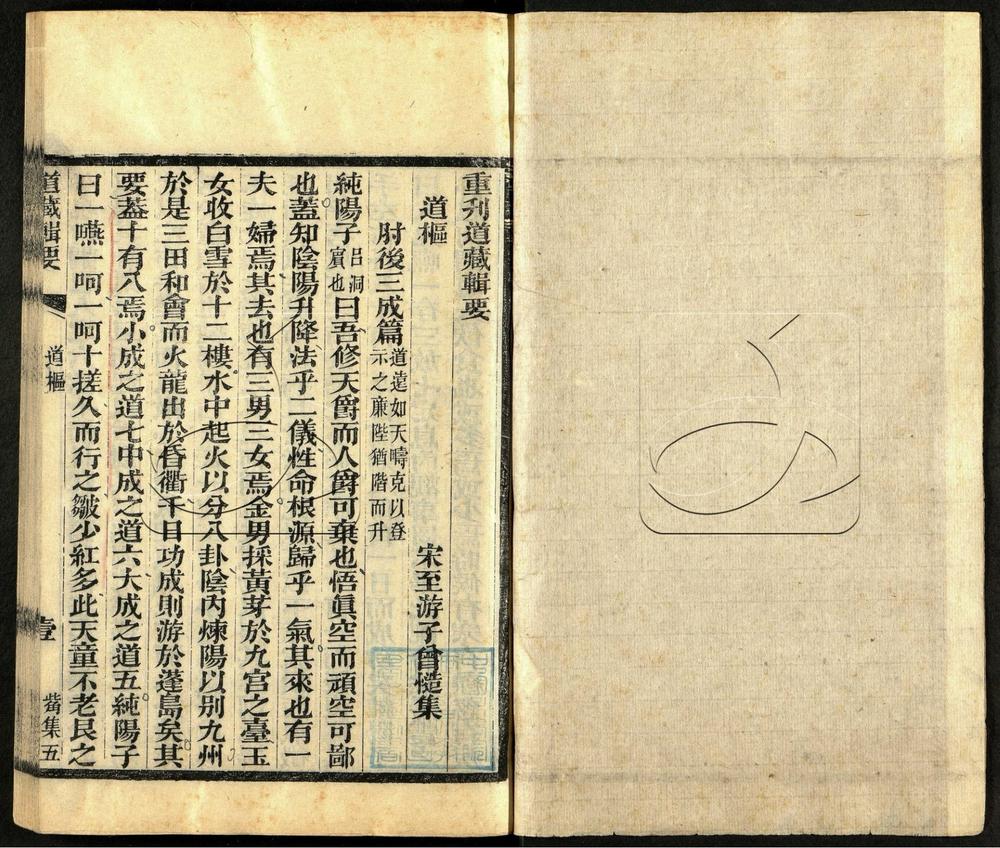 重刋道藏輯要
道樞
宋至游子曾慥集
肘後三成篇 道遠如天疇克以登示之亷陛猶階而升
純陽子 呂洞賓也 曰吾修天爵而人爵可棄也悟眞空而頑空可鄙
也蓋知陰陽升降法乎二儀性命根源歸乎一氣其來也有一
夫一婦焉其去也有三男三女焉金男採黃芽於九宮之臺玉
女收白雪於十二樓水中起火以分八卦陰內煉陽以别九州
於是三田和會而火龍出於昏衢千日功成則游於蓬島矣其
要蓋十有八焉小成之道七中成之道六大成之道五純陽子
曰一嚥一呵一呵十搓久而行之皺少紅多此天童不老艮之
道藏輯要
道樞
壹
觜集五